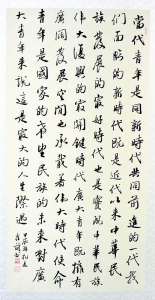 當代青年是同新時代共同前進的一代我
們面臨的新時代既是近代以来中華民
族發展的最好時代也是實現中華民族
偉大復興的最關鍵時代廣大青年既擁有
廣闊發展空間也承載着偉大時代使命
青年是國家的希望民族的未来對廣
大青年来說這是最大的人生際遇